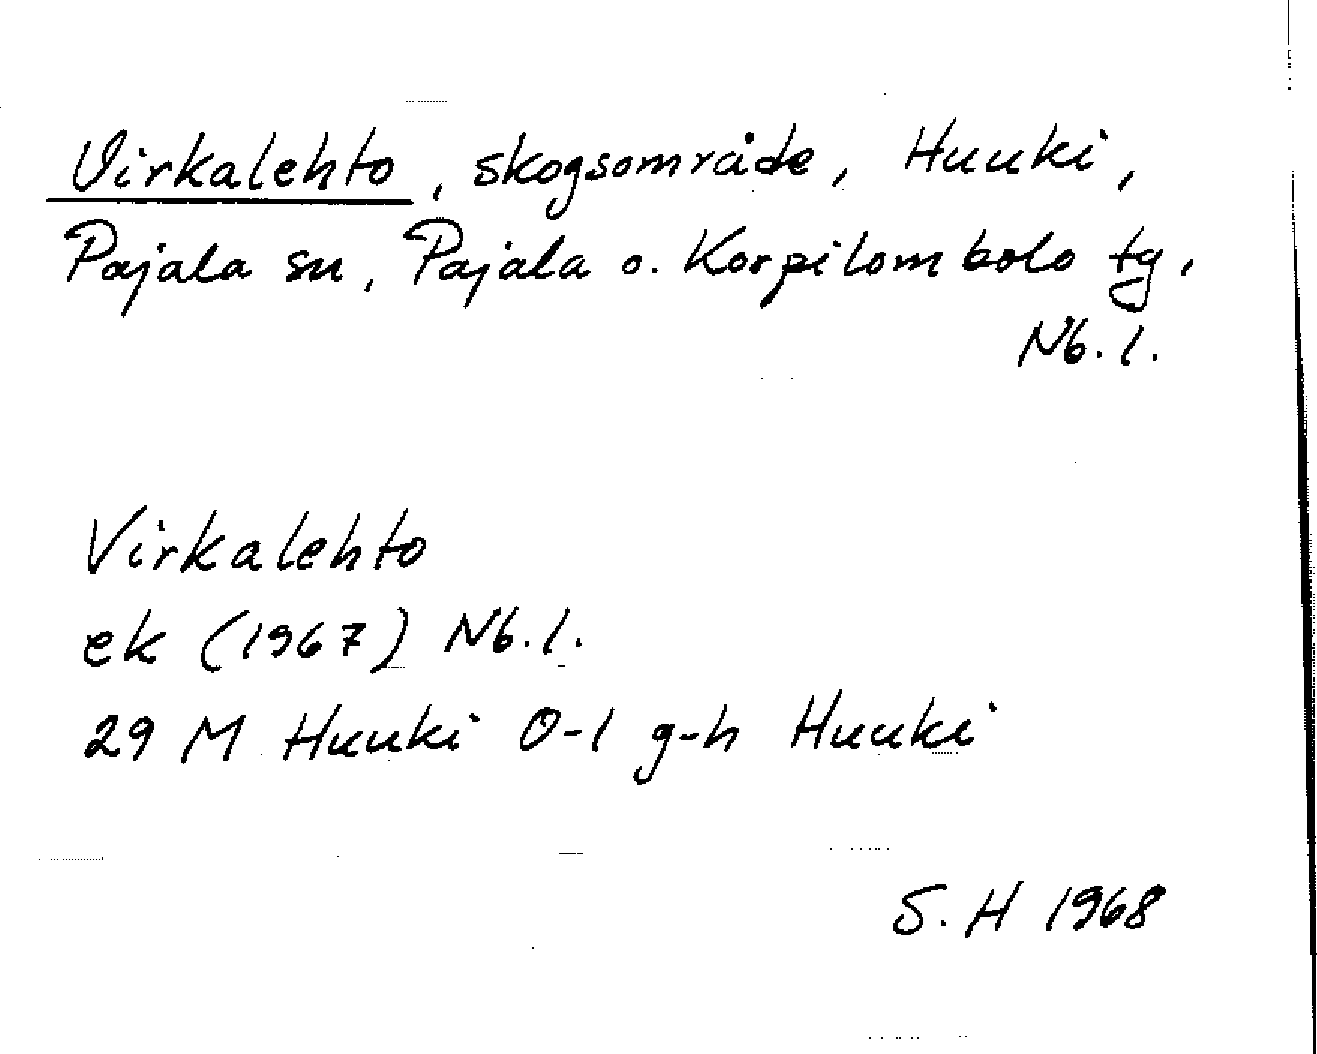 Virkalehto, skogsområde, Huuki,
Pajala sn, Pajala o. Korpilombolo tg,
Nb. l.
Virkalehto
ek (1967) Nb. l.
29 M Huuki 0-1 g-h Huuki
S. H 1968